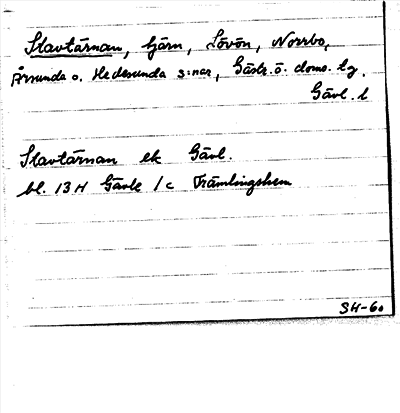 Stavtärnan, tjärn, Lövön, Norrbo,
Årsunda o. Hedesunda s:nar, Gästr. ö. doms. tg,
Gävl. l
Stavtärnan ek Gävl.
bl. 13 H Gävle 1c Främlingshem
SH-60